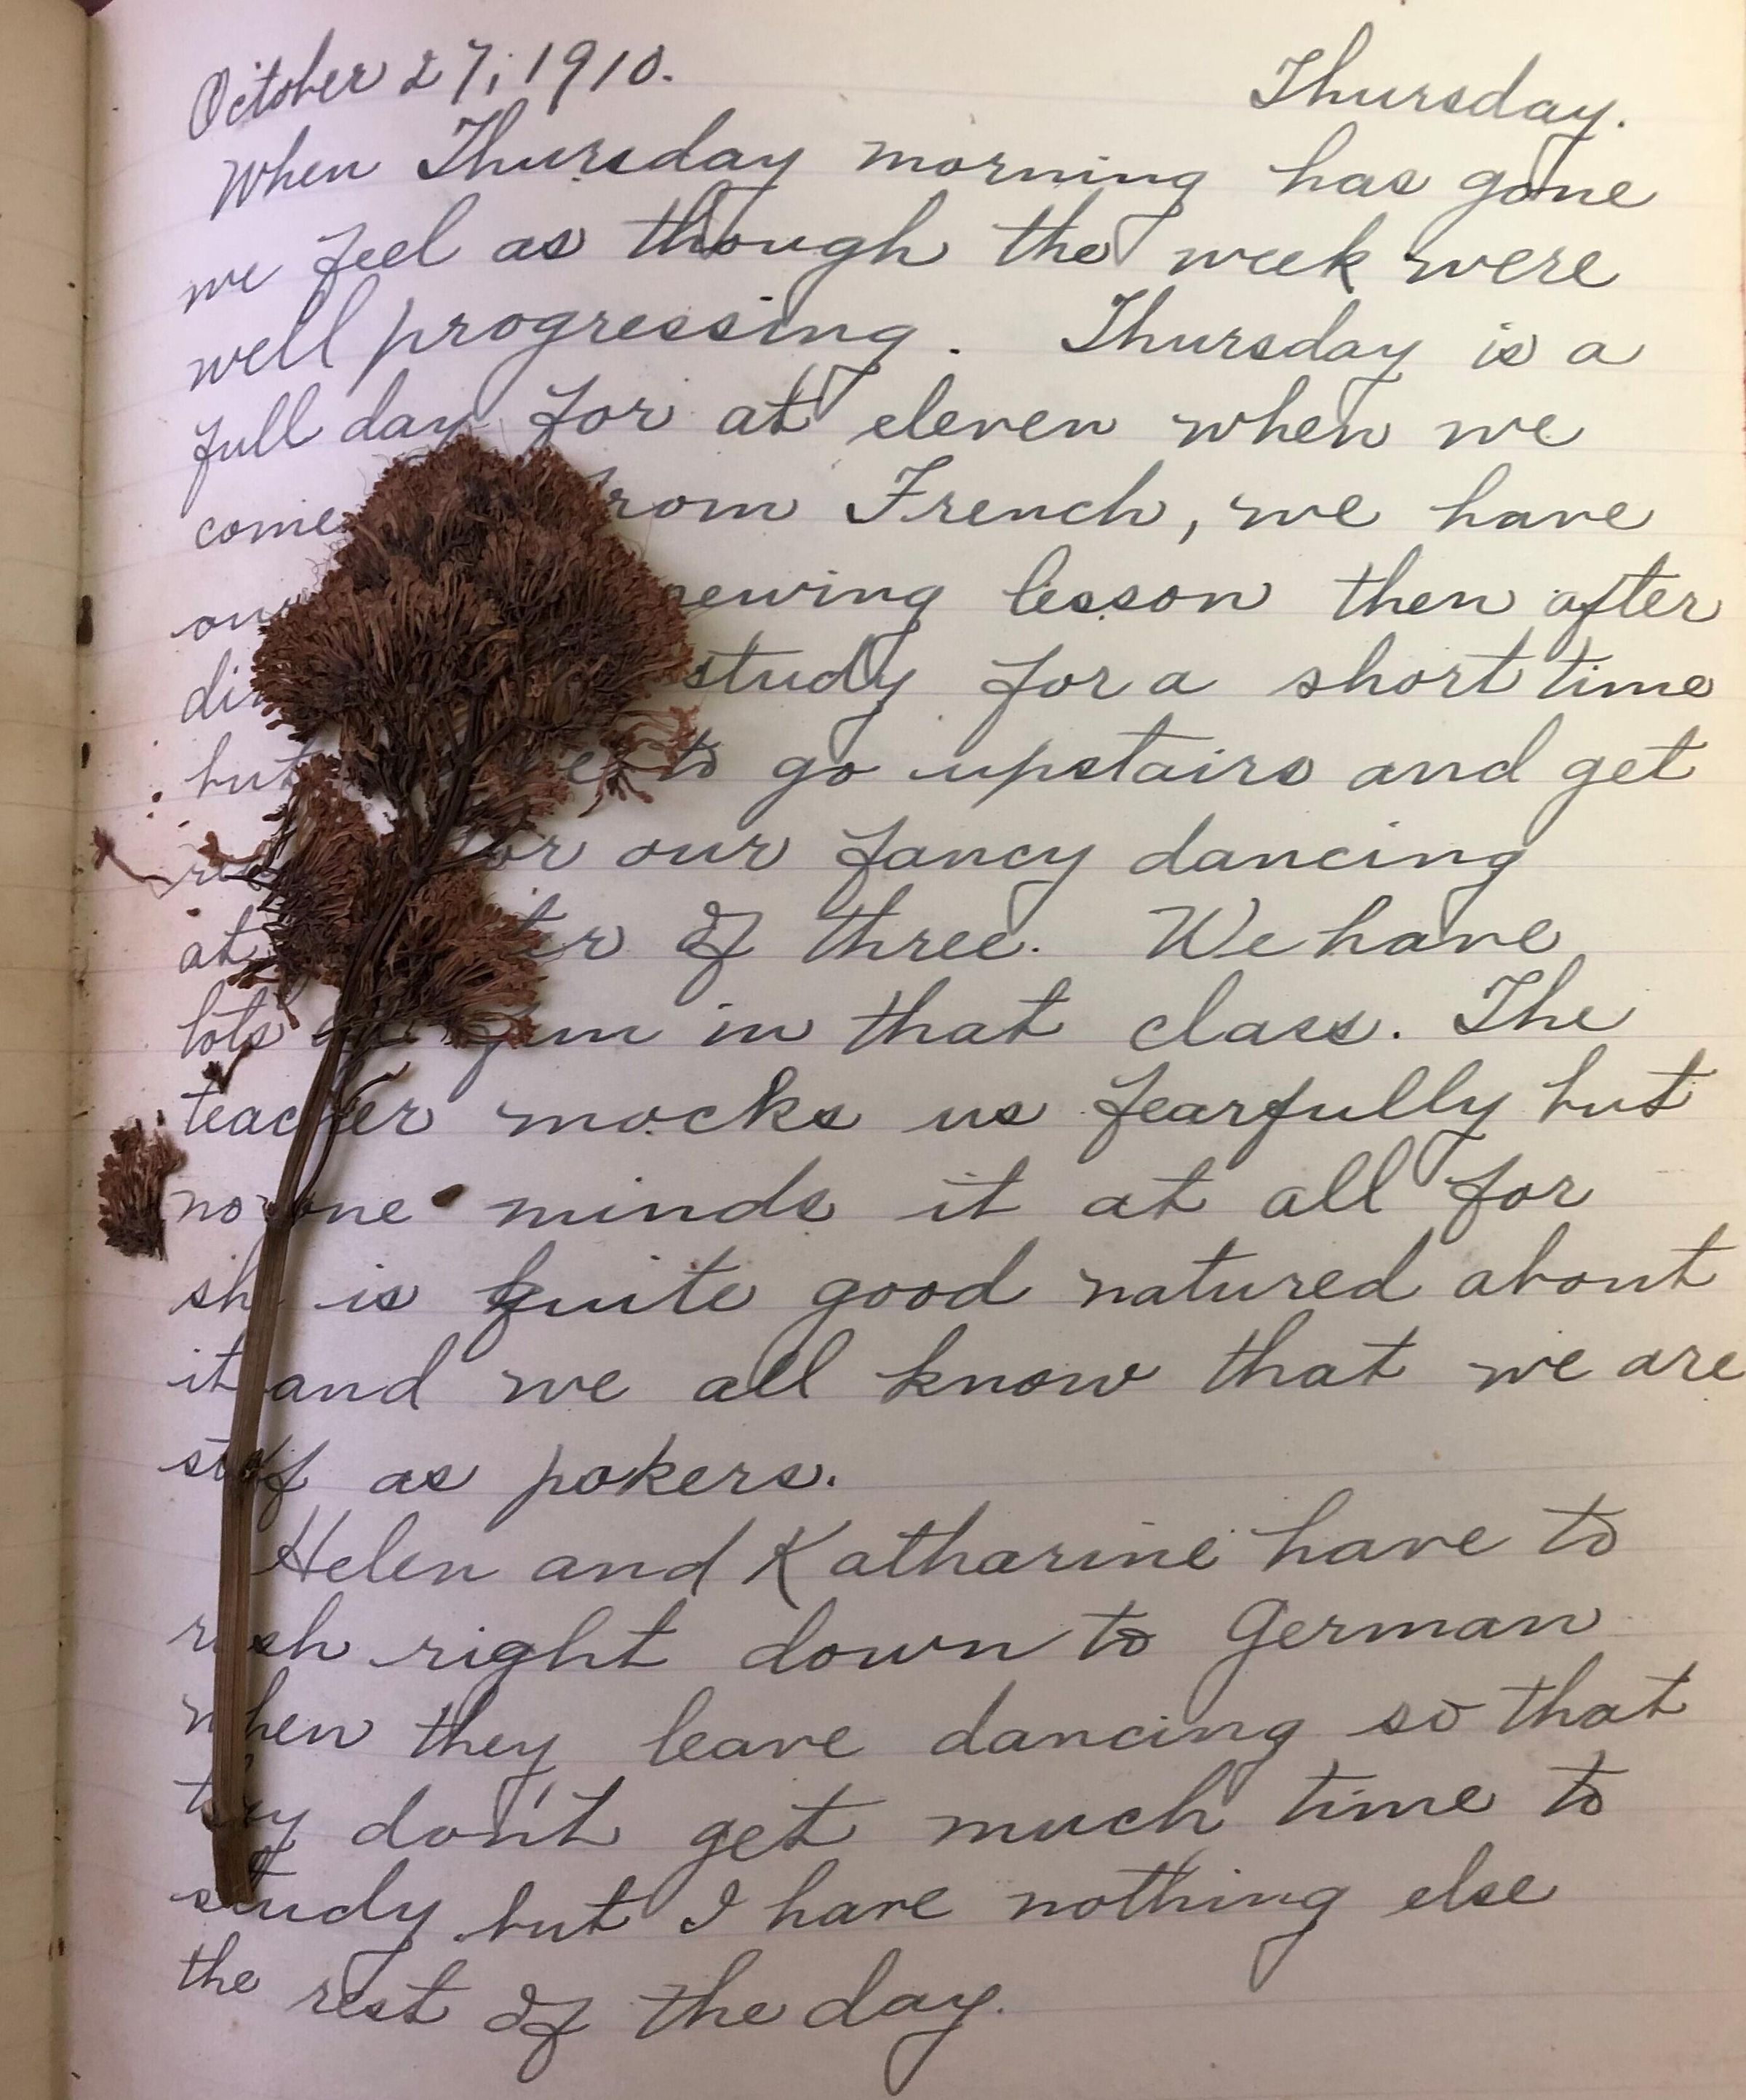 October 27, 1910. Thursday.
When Thursday morning has gone
we feel as though the week were
well progressing. Thursday is a
full day for at eleven when we
come from French, we have
our sewing lesson then after
study for a short time
but to go upstairs and get
for our fancy dancing
at of three. We have
lots fun in that class. The
teacher mocks us fearfully but
no one minds it at all for
she is quite good natured about
it and we all know that we are
stiff as pokers.
Helen and Katharine have to
rush right down to German
when they leave dancing so that
they don't get much time to
study but I have nothing else
the rest of the day.